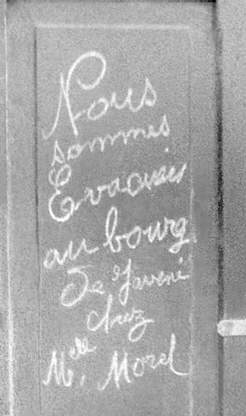 Nous
sommes
Evacués
au bourg
De Javené
chez
Melle. Morel